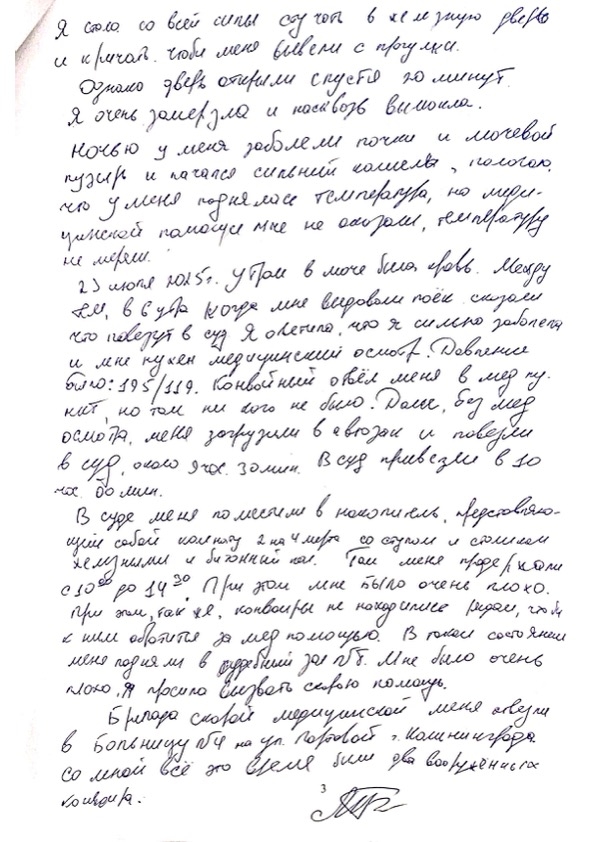 Я стала со всей силы стучать в железную дверь
и кричать. чтобы меня вывели с прогулки.
Однако дверь открыли спустя 20 минут.
Я очень замерзла и насквозь вымокла.
Ночью у меня заболели почки и мочевой
пузырь и начался сильный кашель, полагаю,
что у меня поднялась температура, но меди-
цинской помощи мне не оказали, температуру
не мерили.
23 июля 2025г. утром в моче была кровь. Между
тем, в 6 утра когда мне выдовали поёк сказали
что повезут в суд. Я ответила, что я сильно заболела
и мне нужен медицинский осмотр. Давление
было: 195/119. Конвойный отвёл меня в мед пу-
нкт, но там ни кого не было. Далее, без мед
осмотра, меня загрузили в автозак и повезли
в суд, около 9 час. 30 мин. В суд привезли в 10
час. 00 мин.
В суде меня поместили в накопитель, представляю-
щий собой комнату 2 на 4 метра со стулом и столиком
железными и бетонный пол. Там меня продержали
с 10 00 до 14 30. При этом мне было очень плохо.
При этом, так же, конвоиры не находились рядом, чтобы
к ним обратится за мед помощью. В таком состоянии
меня подняли в судебный зал №8. Мне было очень
плохо, Я просила вызвать скорую помощь.
Бригада скорой медицинской меня отвезла
в Больницу №4 на ул. Портовой г. Калининграда.
со мной всё это время были два вооружённых
конвоира.
3